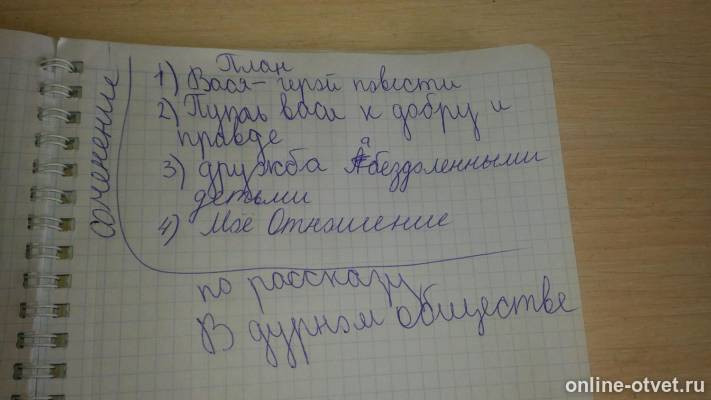 соченение
План
1) Вася - герой повести
2) Путь васи к добру и
правде
3) дружба с обездоленными
детьми
4) Мое Отношение
по рассказу
В дурном обществе
online-otvet.ru